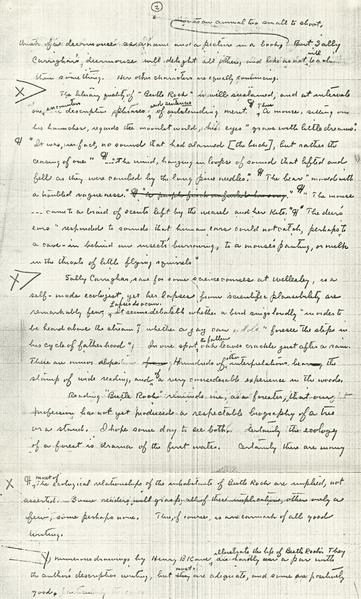 2
an animal too small to shoot,
think of a deermouse as a name and a picture in a book, But Sally
Carrighar's deermouse will delight all others, and
them something. Her other characters are equally convincing.
The literary quality of "Beetle Rock" is well sustained, and at intervals
one encounters descriptive phrases and sentences of outstanding merit. Thus A mouse, sitting on
his haunches, regards the moonlit world, his eyes "grave with little dreams."
"It was, in fact, no sound that had alarmed [the buck], but rather the
ceasing of one." "The wind, hanging in loops of sound that lifted and
fell as they were combed by the long pine needles." The bear "moved with
a troubled vagueness." "The mouse
... came to a braid of scents left by the weasel and her kits." The deer's
ears "responded to sounds that human ears could not catch, perhaps to
a cave-in behind an insect's burrowing, to a mouse's panting, or milk
in the throats of little flying squirrels."
Sally Carrighar, save for some science courses at Wellesley, is a
self-made ecologist, yet her lapses from scientific plausibility are
remarkably few. It seems debatable whether a bird sings loudly "in order to
be heard above the stream", whether a jay can foresee the steps in
his cycle of fatherhood. In one spot, the fallen oak leaves crackle just after a rain.
These are minor slips. Hundreds of other interpolations bear the
stamp of wide reading, and of a very considerable experience in the woods.
Reading "Beetle Rock" reminds me, as a forester, that our
profession has not yet produced a respectable biography of a tree
or a shrub. I hope some day to see both. Certainly the ecology
of a forest is drama of the first water. Certainly there are many
most of The ecological relationships of the inhabitants of Beetle Rock are implied, not
asserted. Some readers will grasp all of these implications, others only a
few, some perhaps none. This, of course, is an earmark of all good
writing.
numerous drawings by Henry B. Kane illustrate the life of Beetle Rock. They
are hardly on a par with
the author's descriptive writing, but most are adequate, and some are positively
good.